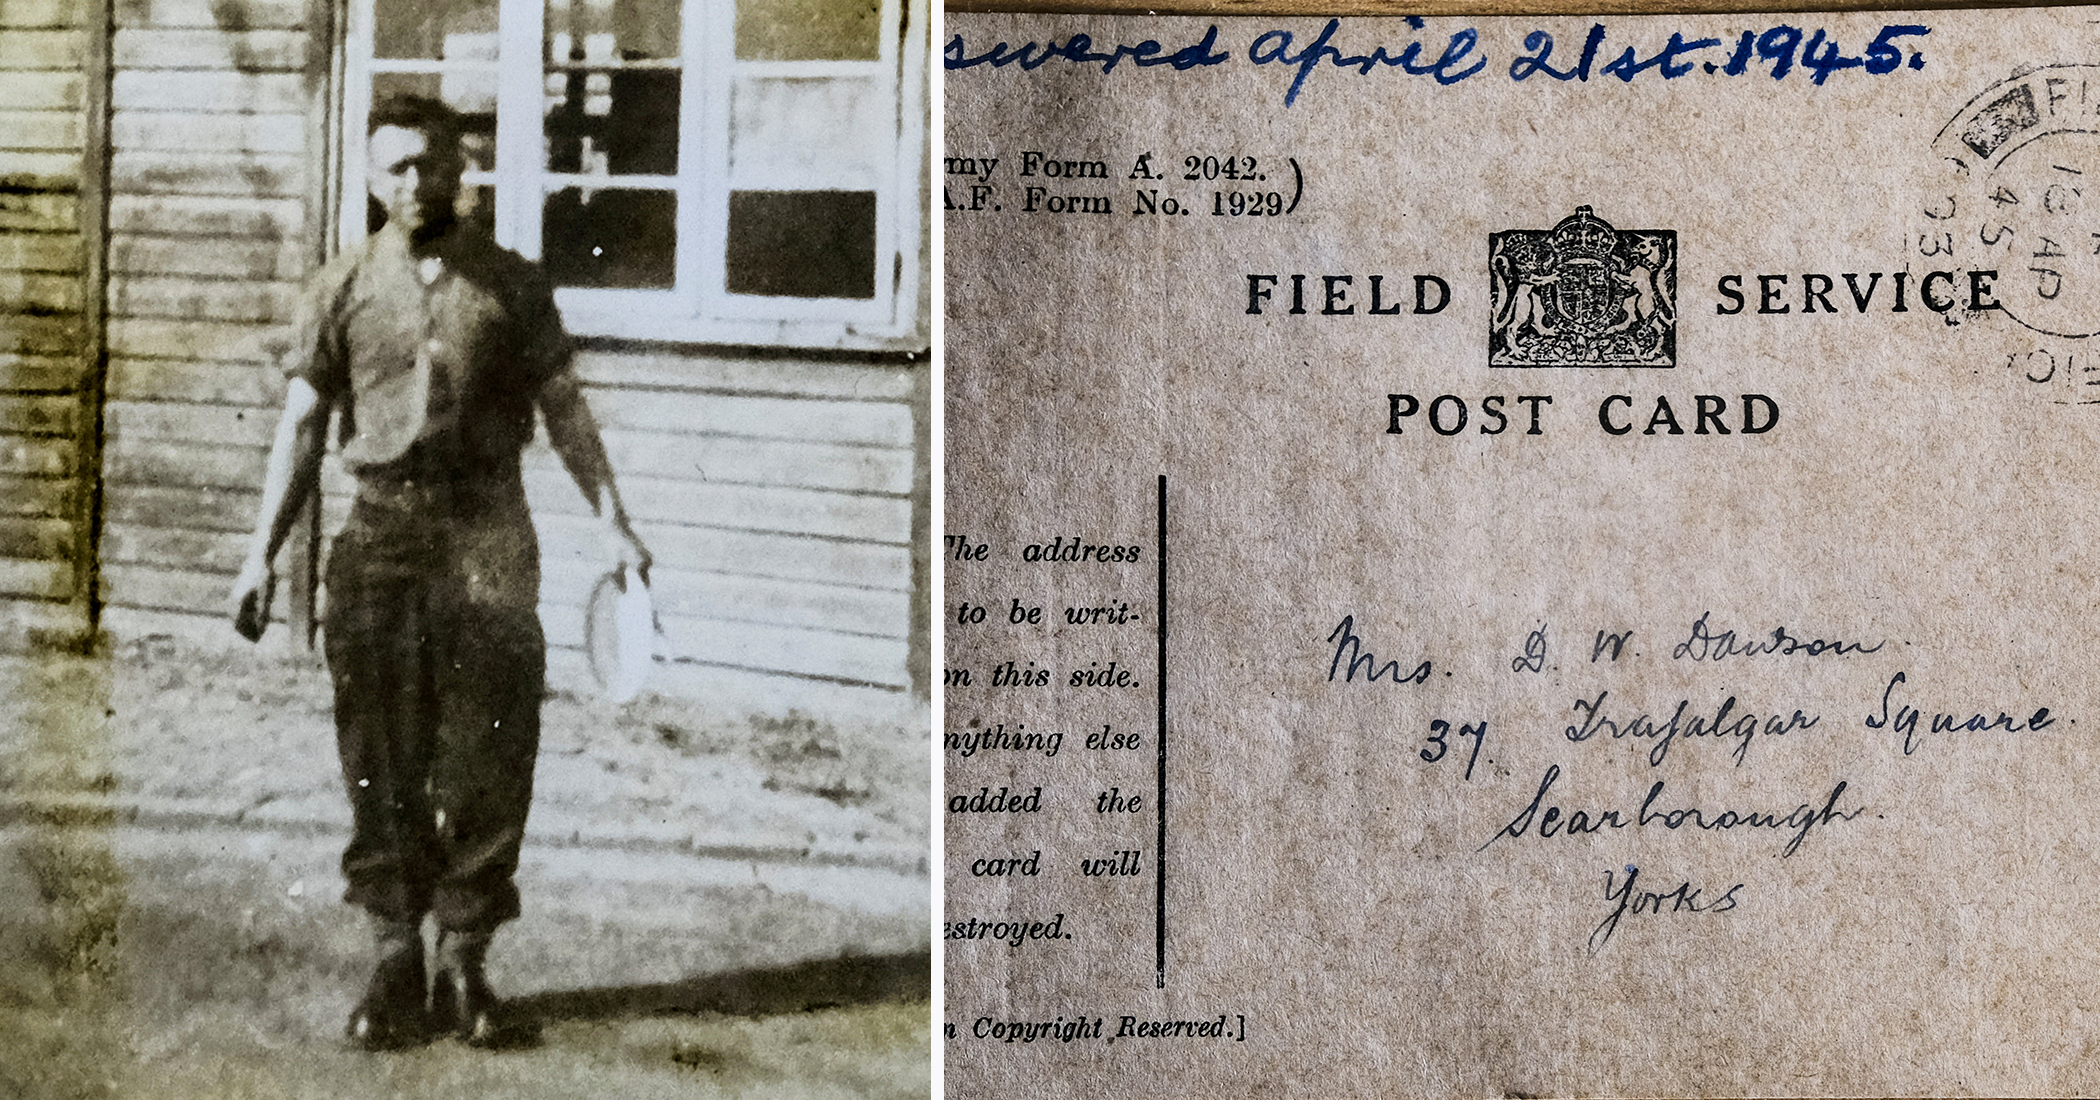 swered april 21st. 1945.
my Form A. 2042.
A.F. Form No. 1929)
FIELD SERVICE
POST CARD
18 AP
45
The address
to be writ-
on this side.
nything else
added the
card will
estroyed.
Mrs. D. W. Dawson.
37. Trafalgar Square.
Scarborough.
Yorks
n Copyright Reserved.]